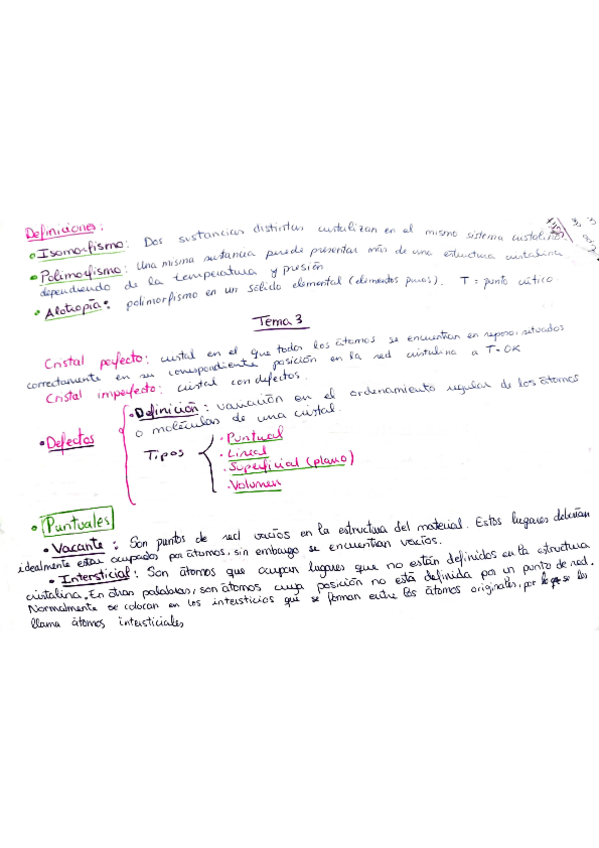 Definiciones:
• Isomorfismo: Dos sustancias distintas cristalizan en el mismo sistema cristalino.
• Polimorfismo: Una misma sustancia puede presentar más de una estructura cristalina
dependiendo de la temperatura y presión
• Alotropía: polimorfismo en un sólido elemental (elementos puros). T = punto crítico
Tema 3
Cristal perfecto: cristal en el que todos los átomos se encuentran en reposo, situados
correctamente en su correspondiente posición en la red cristalina a T = 0K
Cristal imperfecto: cristal con defectos.
• Defectos
• Definición: variación en el ordenamiento regular de los átomos
o moléculas de una cristal.
Tipos
• Puntual
• Lineal
• Superficial (plano)
• Volumen
• Puntuales
• Vacante: Son puntos de red vacíos en la estructura del material. Estos lugares deberían
idealmente estar ocupados por átomos, sin embargo se encuentran vacíos.
• Intersticial: Son átomos que ocupan lugares que no están definidos en la estructura
cristalina. En otras palabras, son átomos cuya posición no está definida por un punto de red.
Normalmente se colocan en los intersticios que se forman entre los átomos originales, por lo que se les
llama átomos intersticiales